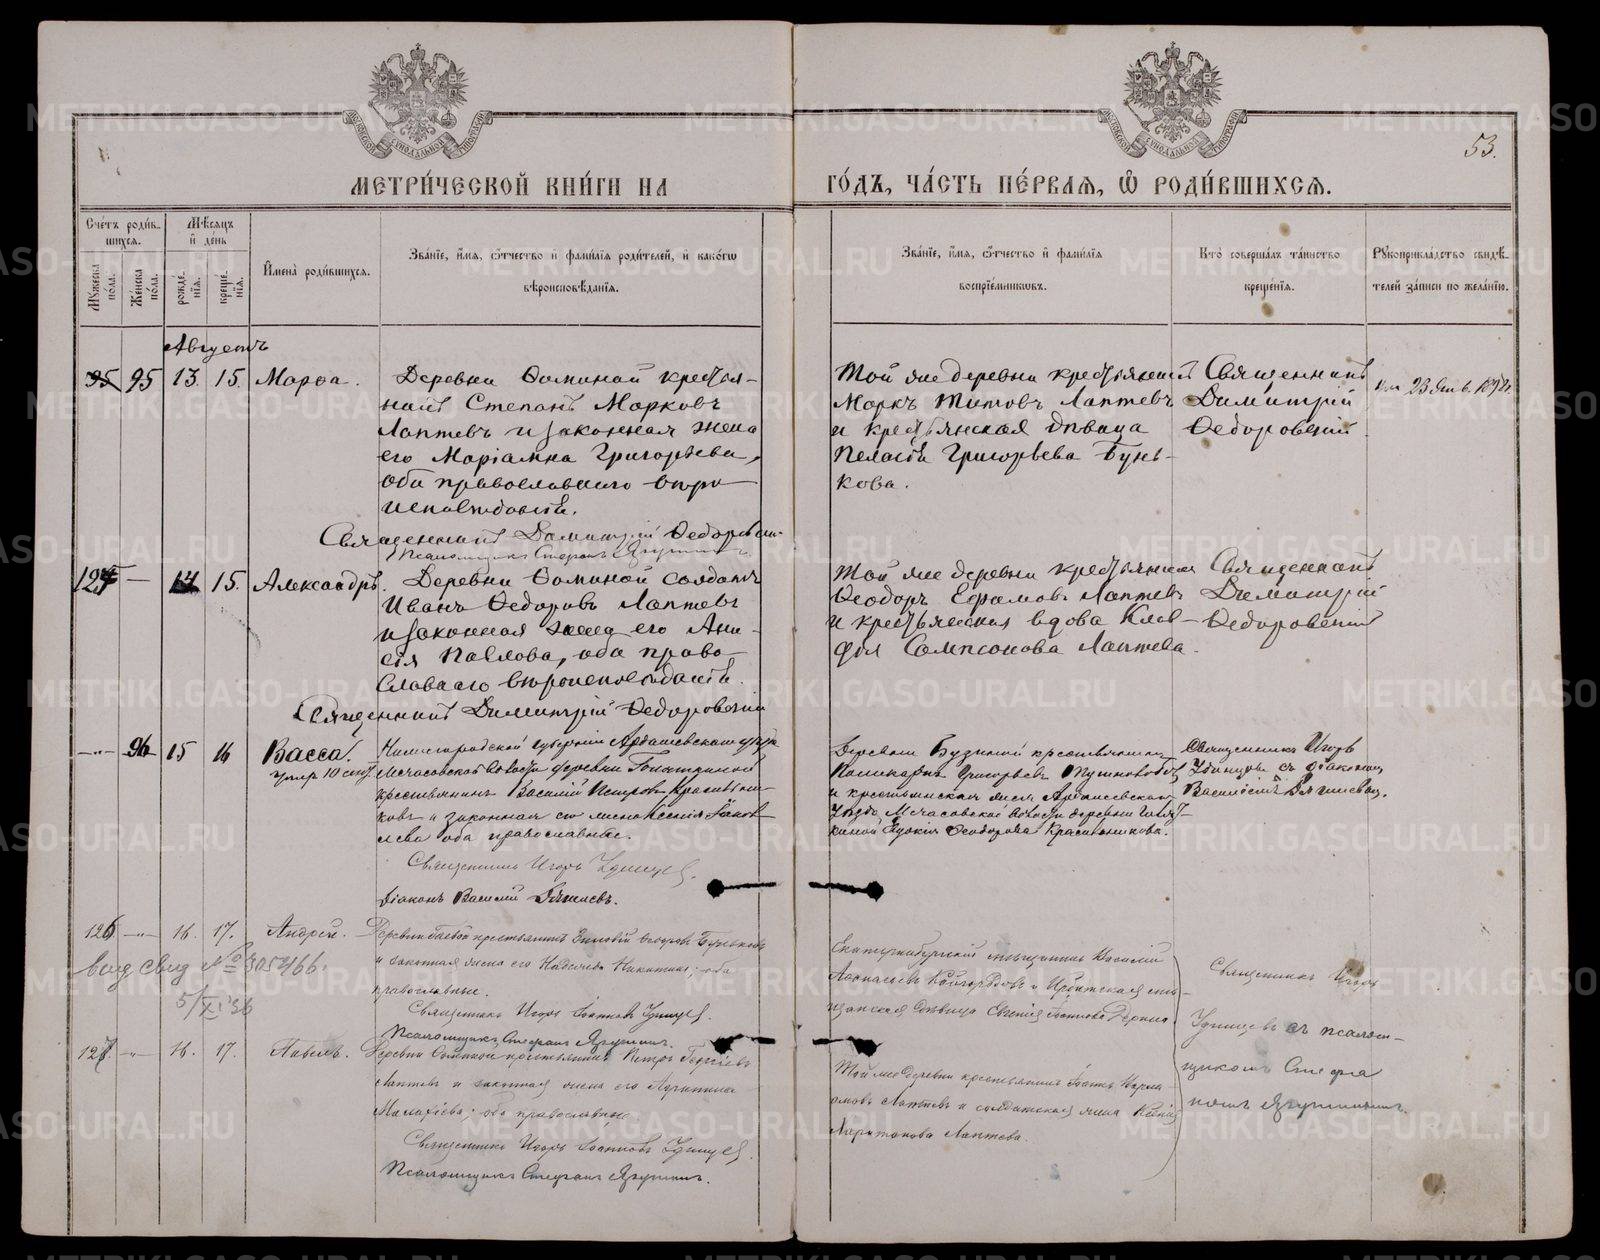 53.
МЕТРИ́ЧЕСКОЙ КНИ́ГИ НА ГО́ДЪ, ЧА́СТЬ ПЕ́РВАЯ, Ѽ РОДИ́ВШИХСЯ.
Сче́тъ роди́в-
шихся.
Му́жеска по́ла.
Же́нска по́ла.
Мѣ́сяцъ
и҆ де́нь
рожде́-
нїя.
креще́-
нїя.
И҆мена̀ роди́вшихся.
Зва́нїе, и҆́мя, ѻ҆́тчество и҆ фами́лїя роди́телей, и҆ како́гѡ
вѣроисповѣ́данїя.
Зва́нїе, и҆́мя, ѻ҆́тчество и҆ фами́лїя
воспрїе́мникѡвъ.
Кто̀ соверша́лъ та́инство
креще́нїя.
Рꙋкоприкла́дство свидѣ́-
телей за́писи по жела́нїю.
Августъ
95 95 13. 15. Марѳа.
Деревни Ѳоминой крестья-
нинъ Степанъ Марковъ
Лаптевъ и законная жена
его Маріамна Григорьева,
оба православнаго вѣро-
исповѣданія.
Священникъ Димитрій Ѳедоровскій
Псаломщикъ Стефанъ
Той же деревни крестьянинъ
Маркъ Титовъ Лаптевъ
и крестьянская дѣвица
Пелагія Григорьева Бунь-
кова.
Священникъ
Димитрій
Ѳедоровскій
125 — 14 15. Александръ.
Деревни Ѳоминой солдатъ
Иванъ Ѳедоровъ Лаптевъ
и законная жена его Ани-
сія Павлова, оба право-
славнаго вѣроисповѣданія.
Священникъ Димитрій Ѳедоровскій
Той же деревни крестьянинъ
Ѳеодоръ Ефремовъ Лаптевъ
и крестьянская вдова Клав-
дія Сампсонова Лаптева.
Священникъ
Димитрій
Ѳедоровскій
—"— 96 15 16 Васса.
умер 10 сент
Нижегородской губерніи Ардатовскаго уѣзда
деревни
крестьянинъ Василій Петровъ Красильни-
ковъ и законная его жена Ксенія Іаков-
лева оба православные.
Священникъ Игорь Удинцев.
Діаконъ Василій
Деревни крестьянинъ
Григорьевъ
и крестьянская жена
уѣзда волости деревни
Ѳеодорова Красильникова.
Священникъ Игорь
Удинцевъ съ діакономъ
Василіемъ
126 —"— 16. 17. Андрей.
вид свид № 305466.
5/XI 36
Деревни крестьянинъ Зиновій Ѳедоровъ Буньковъ
и законная жена его Надежда Никитина; оба
православные.
Священникъ Игорь Іоанновъ Удинцев.
Псаломщикъ Стефанъ
Екатеринбургскій мѣщанинъ Василій
и Ирбитская мѣ-
щанская дѣвица Евгенія Іоаннова
Священникъ Игорь
Удинцевъ съ псалом-
щикомъ Стефа-
номъ
127. —"— 16. 17. Павелъ.
Деревни Ѳоминой крестьянинъ Петръ Георгіевъ
Лаптевъ и законная жена его
Малахіева; оба православные
Священникъ Игорь Іоанновъ Удинцев.
Псаломщикъ Стефанъ
Той же деревни крестьянинъ Іоаннъ
Лаптевъ и солдатская жена Ксенія
Харитонова Лаптева.
METRIKI.GASO-URAL.RU